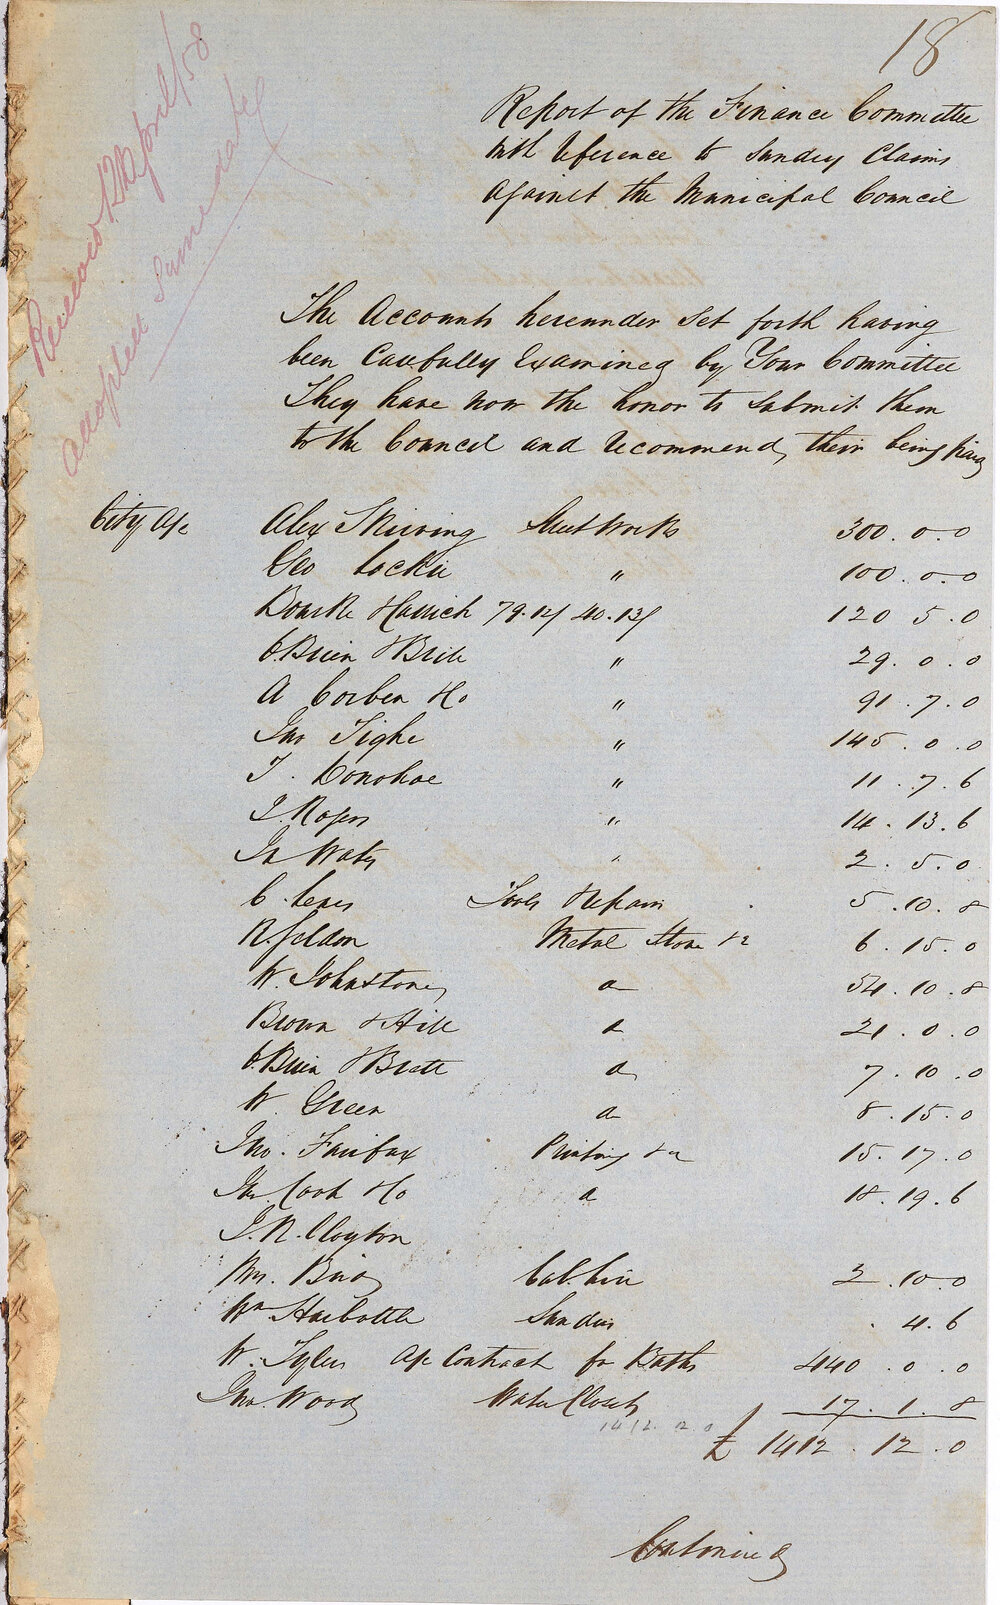 18
Received 12 April/58
adopted same date
Report of the Finance Committee
with reference to Sundry Claims
against the Municipal Council
The Accounts hereunder set forth having
been Carefully Examined by Your Committee
They have now the honor to submit them
to the Council and recommend their being paid
City A/c Alex Skirving Street Works 300 . 0 . 0
Geo Lockie " 100 . 0 . 0
Bourke & Harrich 79.12/ 40.13/ 120 5 . 0
O'Brien & " 29 . 0 . 0
A Corben & Co " 91 . 7 . 0
Jno Tighe " 145 . 0 . 0
T . Donohoe " 11 . 7 . 6
J. Rogers " 14 . 13 . 6
Jn Water " 2 . 5 . 0
C. Tools & Repairs 5 . 10 . 8
R. Seldon Metal Stone &c 6 . 15 . 0
W. Johnstone 54 . 10 . 8
Brown & Hill 21 . 0 . 0
O'Brien & 7 . 10 . 0
W. Green 8 . 15 . 0
Jno. Fairfax Printing &c 15 . 17 . 0
Jn. Cook & Co 18 . 19 . 6
J. R. Clayton
Mr. Bird Cab hire 2 . 10 0
Wm Harbottle Sundries . 4 . 6
W. Tyler A/c Contract for Baths 440 . 0 . 0
Jno. Wood Water Closets 17 . 1 . 8
1412 . 12 . 0
£ 1412 . 12 . 0
Continued